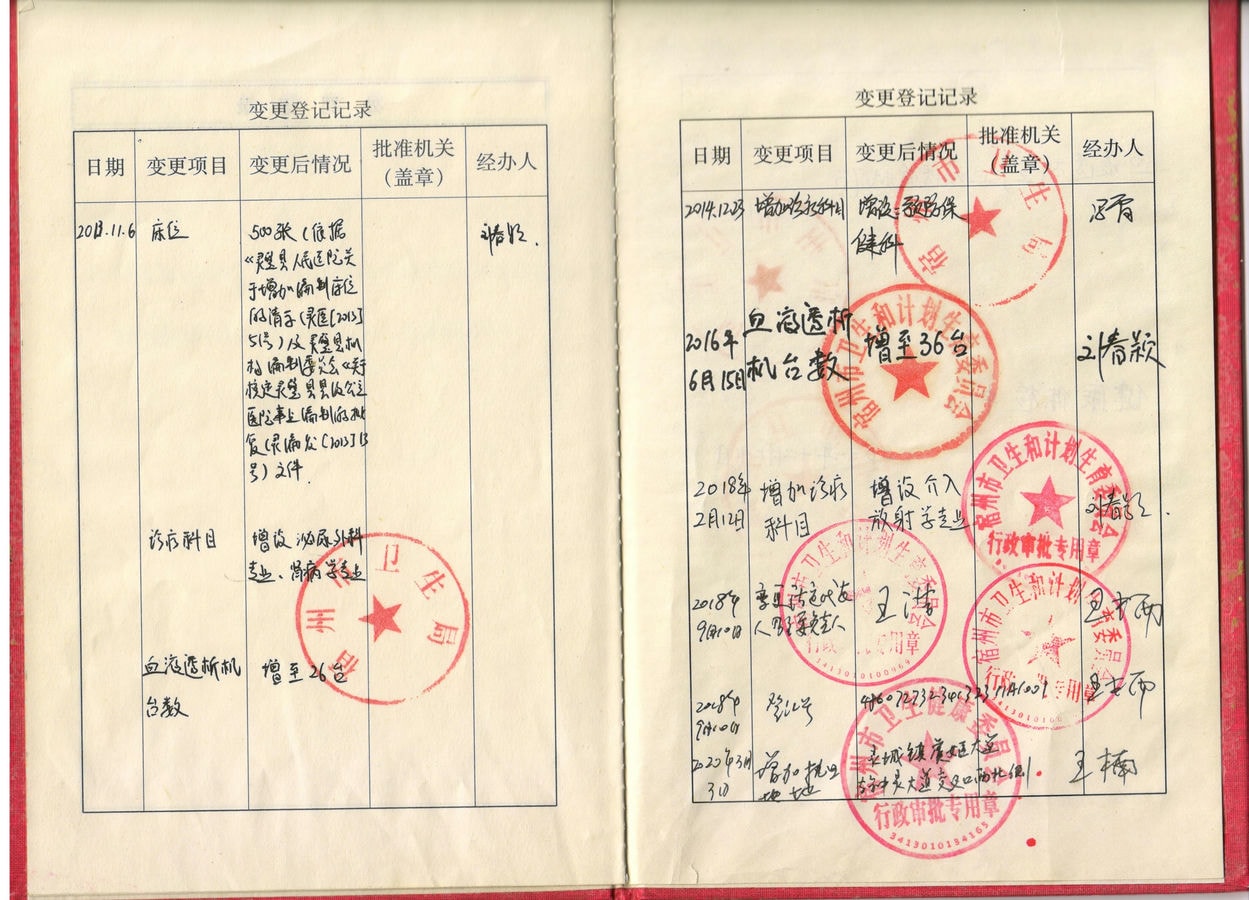 变更登记记录
日期 变更项目 变更后情况 批准机关（盖章） 经办人
床位 500张（依据
《灵璧县人民医院关
于增加编制床位
的请示（灵医[2013]
5号）及灵璧县机
构编制委员会《关于
核定灵璧县县级公立
医院事业编制的批
复（灵编发[2013]13
号）文件.
诊疗科目 增设泌尿外科
专业、肾病学专业
血液透析机 增至26台
台数
宿州市卫生局
变更登记记录
日期 变更项目 变更后情况 批准机关（盖章） 经办人
2014.12.23 增加诊疗科目 增设：预防保
健科
宿州市卫生局
2016年 血液透析 增至36台 刘春颖
6月15日 机台数
宿州市卫生和计划生育委员会
2018年 增加诊疗 增设介入
2月12日 科目 放射学专业
宿州市卫生和计划生育委员会
行政审批专用章
2018年 变更法定代表 王洁
9月10日 人
宿州市卫生和计划生育委员会
行政审批专用章
3413010100469
2018年 登记号
9月10日
宿州市卫生和计划生育委员会
行政审批专用章
2020年3月 增加执业 灵城镇虞姬大道 王楠
3日 地址 交叉口西北侧
宿州市卫生健康委员会
行政审批专用章
3413010194165